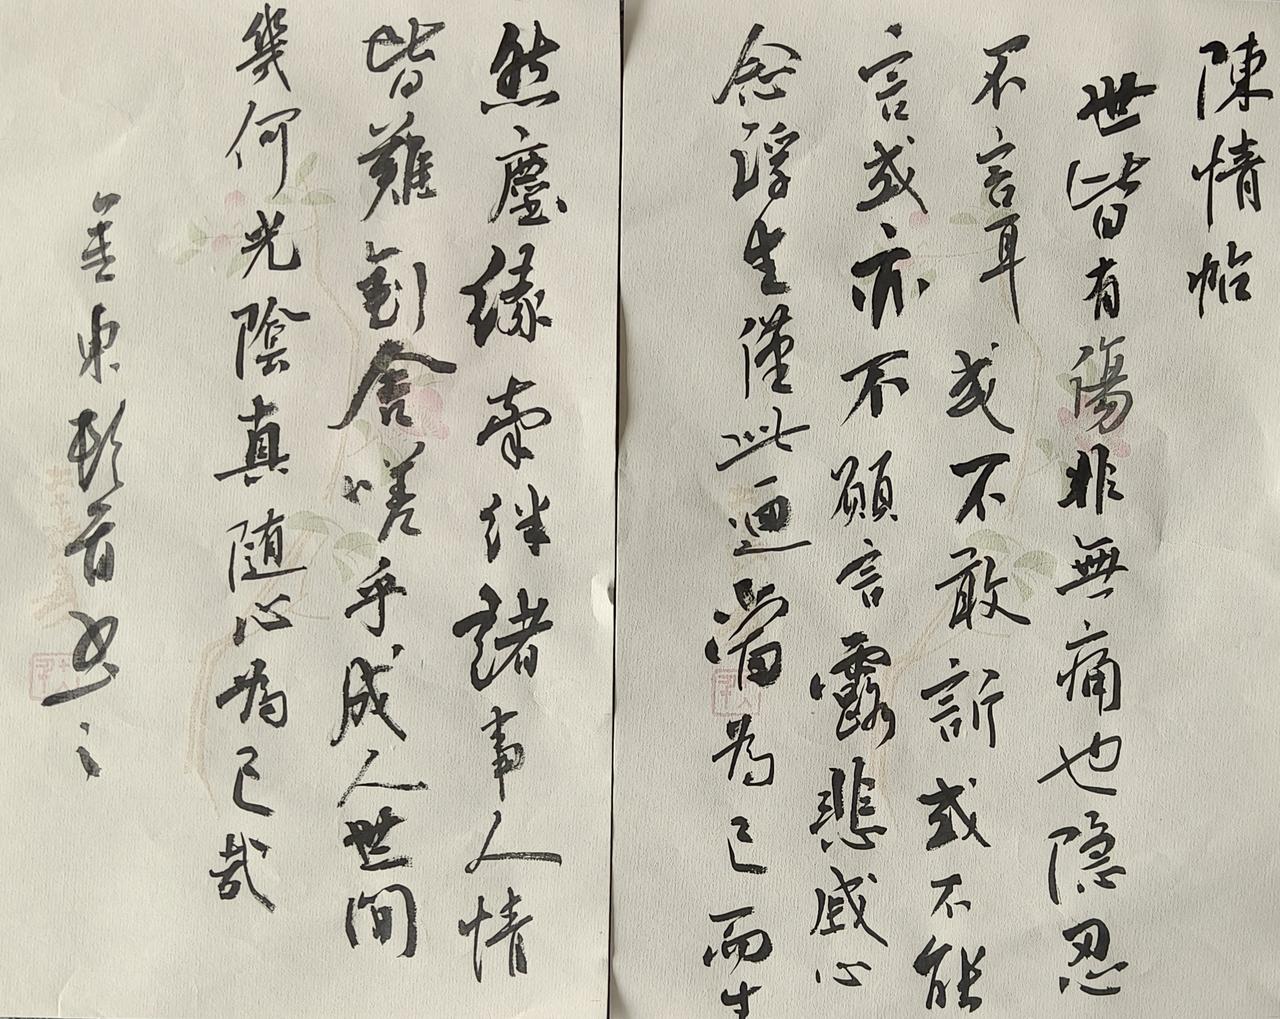 陳情帖
世皆有傷非無痛也隐忍
不言耳或不敢訴或不能
言或亦不願言露悲戚心
念浮生僅此迴當為己而生
然塵緣牽絆諸事人情
皆難割舍嗟乎成人世間
幾何光陰真随心為己哉
東頓首書之